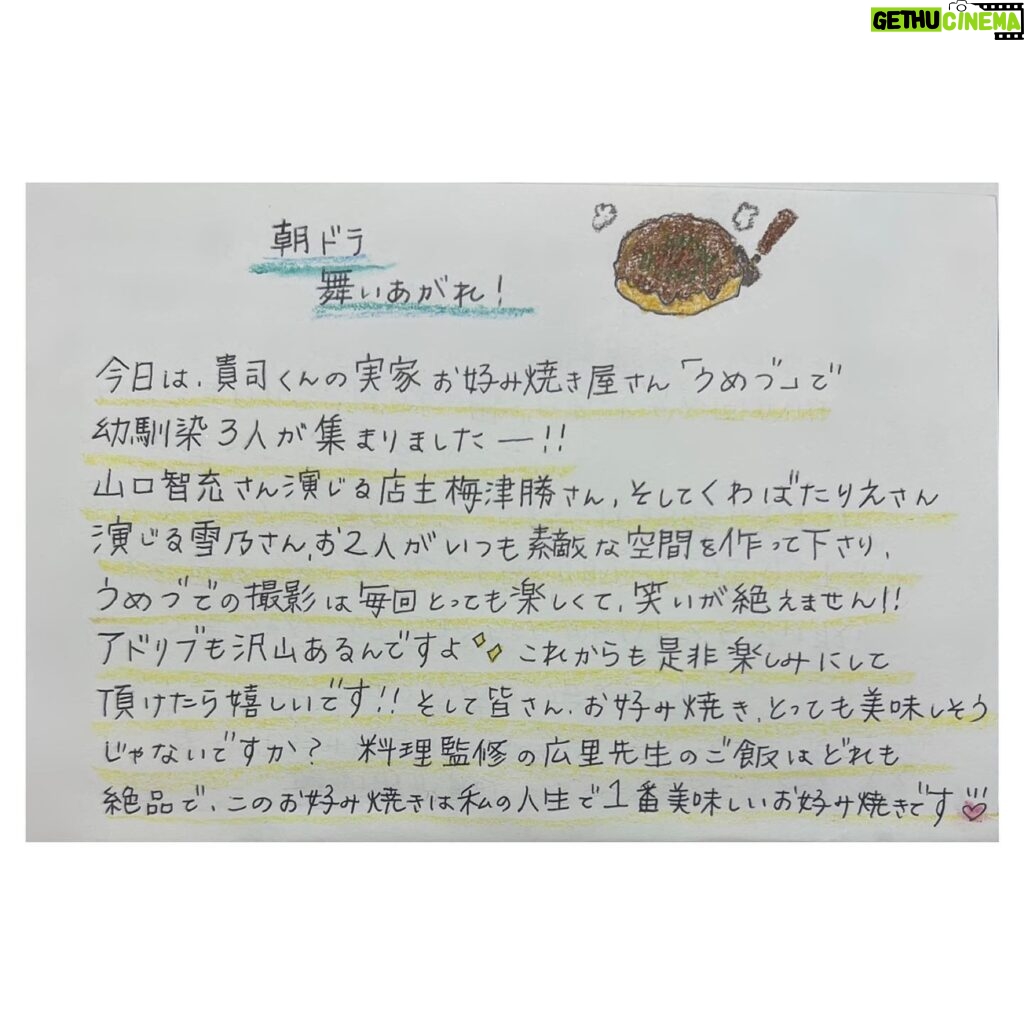 GETHU CINEMA
朝ドラ
舞いあがれ!
今日は、貴司くんの実家お好み焼き屋さん「うめづ」で
幼馴染3人が集まりましたー!!
山口智充さん演じる店主梅津勝さん、そしてくわばたりえさん
演じる雪乃さん、お2人がいつも素敵な空間を作って下さり、
うめづでの撮影は毎回とっても楽しくて、笑いが絶えません!!
アドリブも沢山あるんですよ これからも是非楽しみにして
頂けたら嬉しいです!! そして皆さん、お好み焼き、とっても美味しそう
じゃないですか? 料理監修の広里先生のご飯はどれも
絶品で、このお好み焼きは私の人生で1番美味しいお好み焼きです